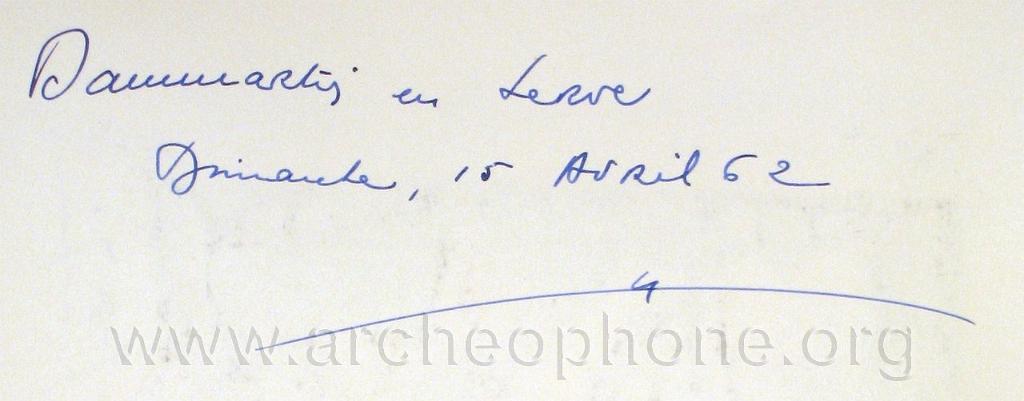 Dammartin en Serve
Dimanche, 15 Avril 62
4
www.archeophone.org